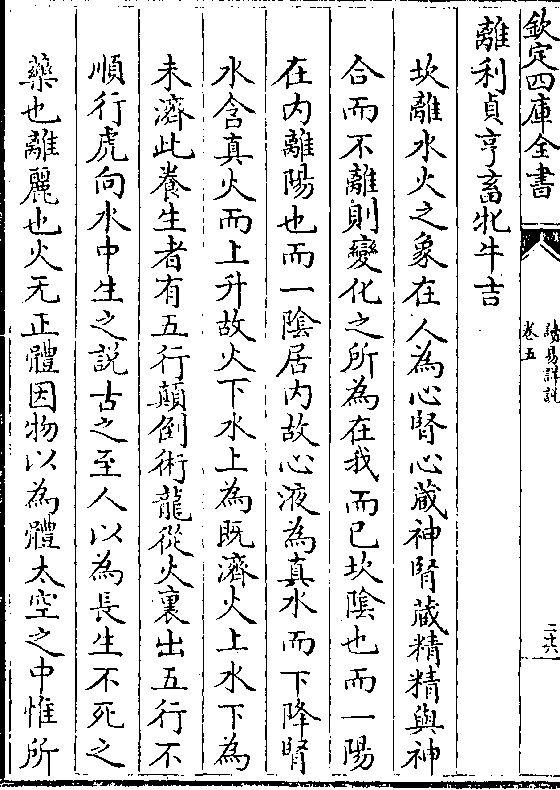 欽定四庫全書
讀易詳說
卷五
二十六
離利貞亨畜牝牛吉
坎離水火之象在人為心腎心蔵神腎蔵精精與神
合而不離則變化之所為在我而已坎陰也而一陽
在内離陽也而一陰居内故心液為真水而下降腎
水含真火而上升故火下水上為既濟火上水下為
未濟此養生者有五行顛倒術龍從火裏出五行不
順行虎向水中生之說古之至人以為長生不死之
藥也離麗也火无正體因物以為體太空之中惟所